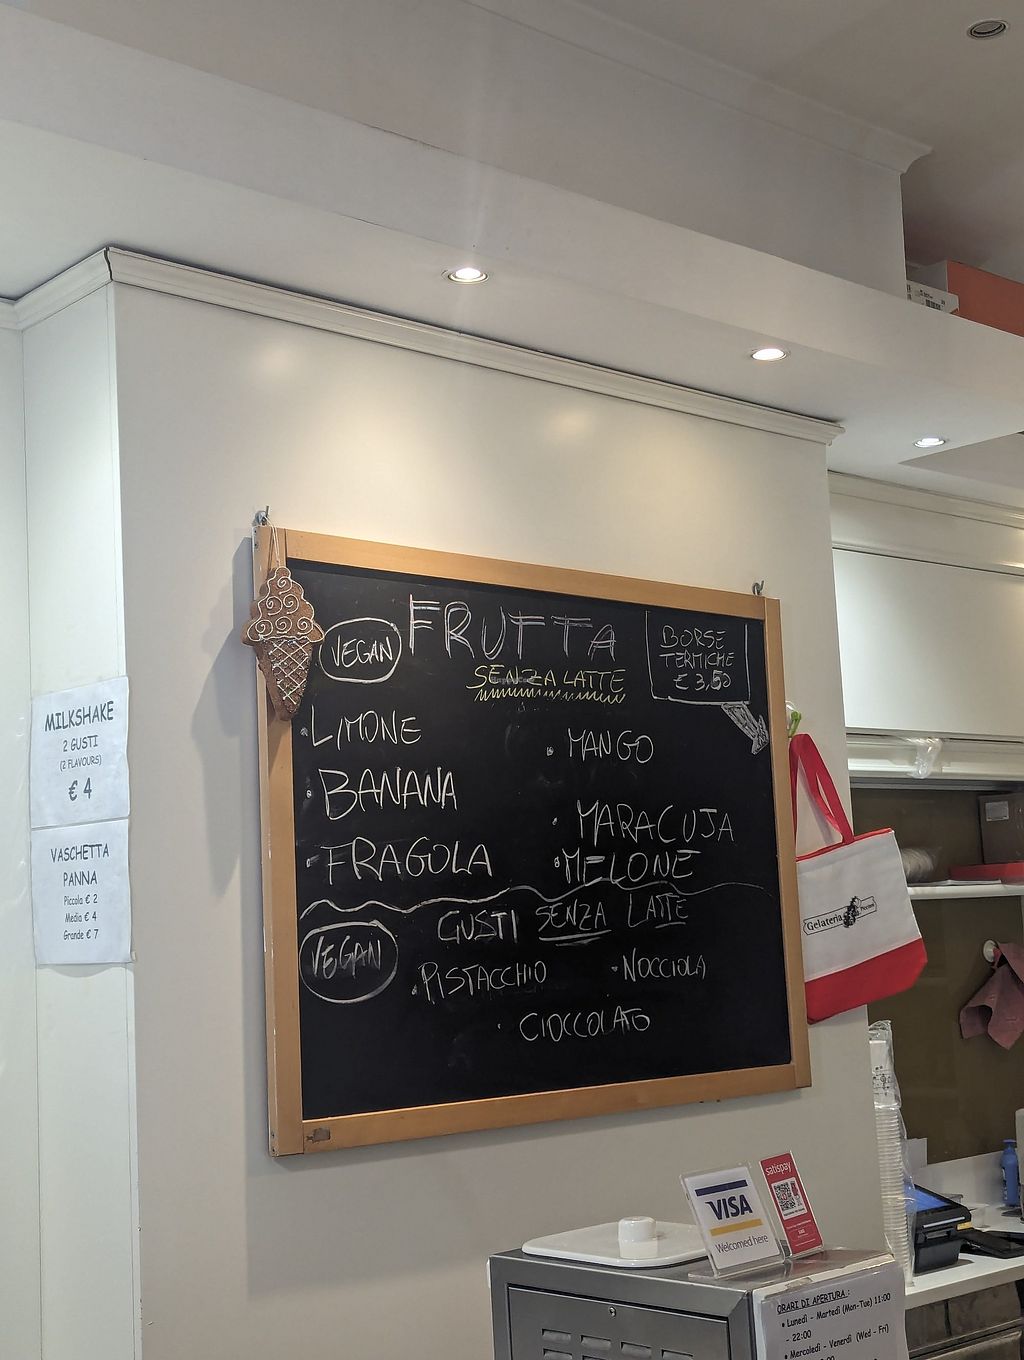 VEGAN
FRUTTA
SENZA LATTE
BORSE
TERMICHE
€ 3,50
LIMONE
MANGO
BANANA
MARACUJA
FRAGOLA
MELONE
VEGAN
GUSTI SENZA LATTE
PISTACCHIO
NOCCIOLA
CIOCCOLATO
MILKSHAKE
2 GUSTI
(2 FLAVOURS)
€ 4
VASCHETTA
PANNA
Piccola € 2
Media € 4
Grande € 7
Gelateria
satispay
VISA
Welcomed here
ORARI DI APERTURA :
• Lunedì - Martedì (Mon-Tue) 11:00
- 22:00
• Mercoledì - Venerdì (Wed - Fri)